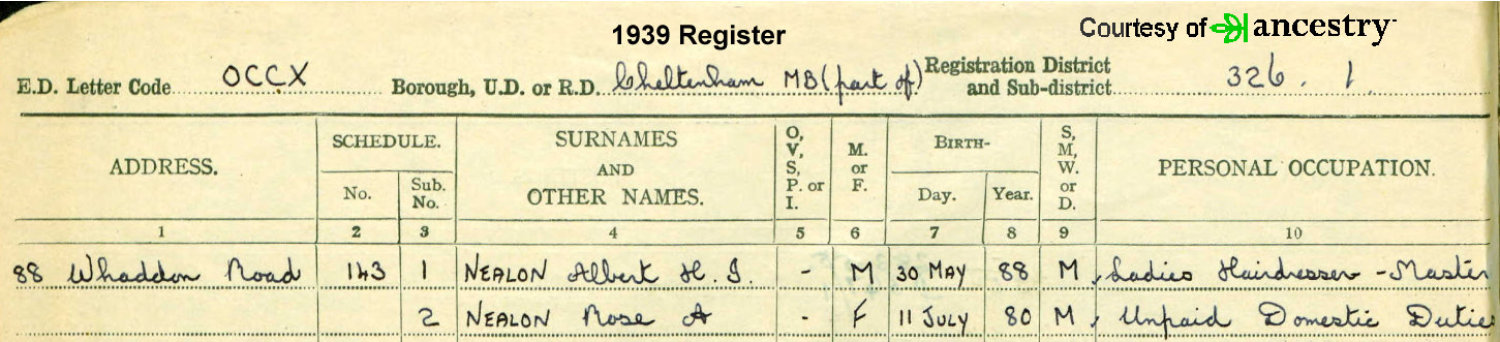 1939 Register Courtesy of ancestry
E.D. Letter Code OCCX Borough, U.D. or R.D. Cheltenham MB (part of) Registration District and Sub-district 326. 1
ADDRESS. SCHEDULE. No. Sub. No. SURNAMES AND OTHER NAMES. O, V, S, P. or I. M. or F. BIRTH- Day. Year. S, M, W. or D. PERSONAL OCCUPATION.
1 2 3 4 5 6 7 8 9 10
88 Whaddon Road 143 1 NEALON Albert H. J. - M 30 MAY 88 M Ladies Hairdresser - Master
2 NEALON Rose A - F 11 JULY 80 M Unpaid Domestic Duties